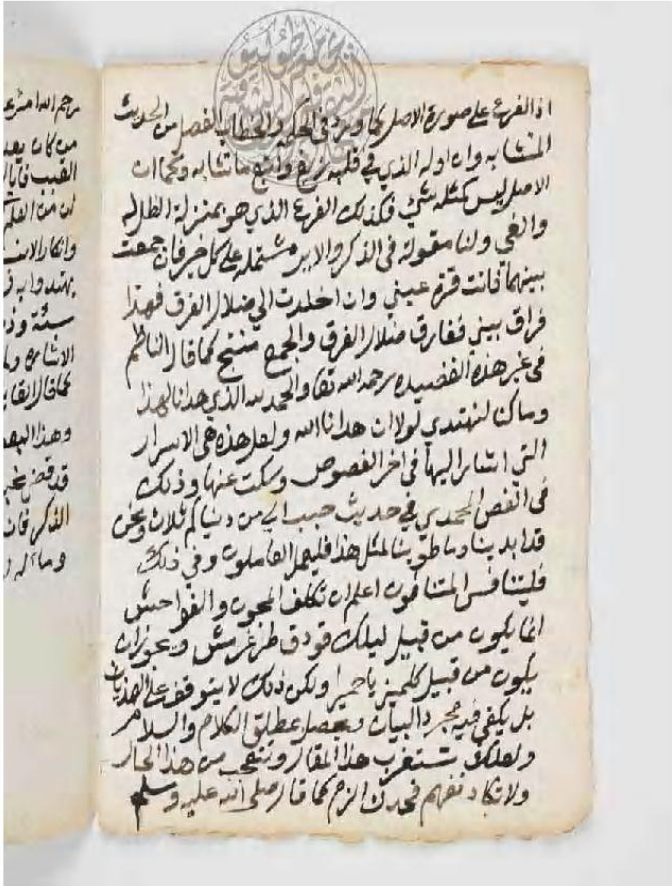 اذ الفرع على صورة الاصل كما ورد في الحكمة والخطاب الفصل من الحديث
المتشابه وان اوله الذي في قلبه زيغ واتبع ما تشابه وكما ان
الاصل ليس كمثله شيء فكذلك الفرع الذي هو بمنزلة الظلاله
والفي ولنا مقولة في الذكر والاير مشتملة على كل خير فان جمعت
بينهما فانت قرة عيني وان اخلدت الي ضلال الفرق فهذا
فراق بيني ففارق ضلال الفرق والجمع منتج كما قال الناظم
في غير هذه القصيده رحمه الله تعا والحمد لله الذي هدانا لهذا
وما كنا لنهتدي لولا ان هدانا الله ولعل هذه هي الاسرار
التي اشار اليها في اخر الفصوص وسكت عنها وذلك
في الفص المحمدي في حديث حبب الي من دنياكم ثلاث ونحن
قد ابدينا وما طوينا لمثل هذا فليعمل العاملون وفي ذلك
فليتنافس المتنافسون اعلم ان تكلف المجون والفواحش
انما يكون من قبيل ليلك قودق طز غرمش ويجوز ان
يكون من قبيل كلميز يا حميرا ولكن ذلك لا يتوقف على الهذيان
بل يكفي فيه مجرد البيان ويحصل بمطلق الكلام والسلام
ولعلك تستغرب هذا المقال وتتعجب من هذا الحال
ولا تكاد تفهم فحدك الزم كما قال صلى الله عليه وسلم